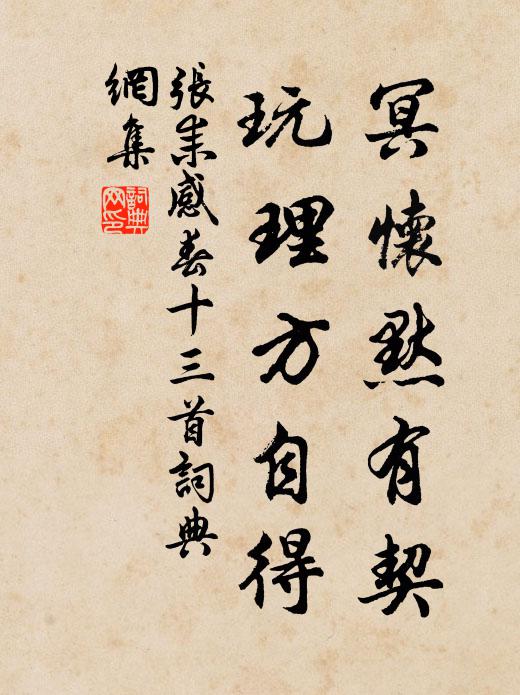 冥懷默有契
玩理方自得
張耒感春十三首詞典
網集
詞典
網印